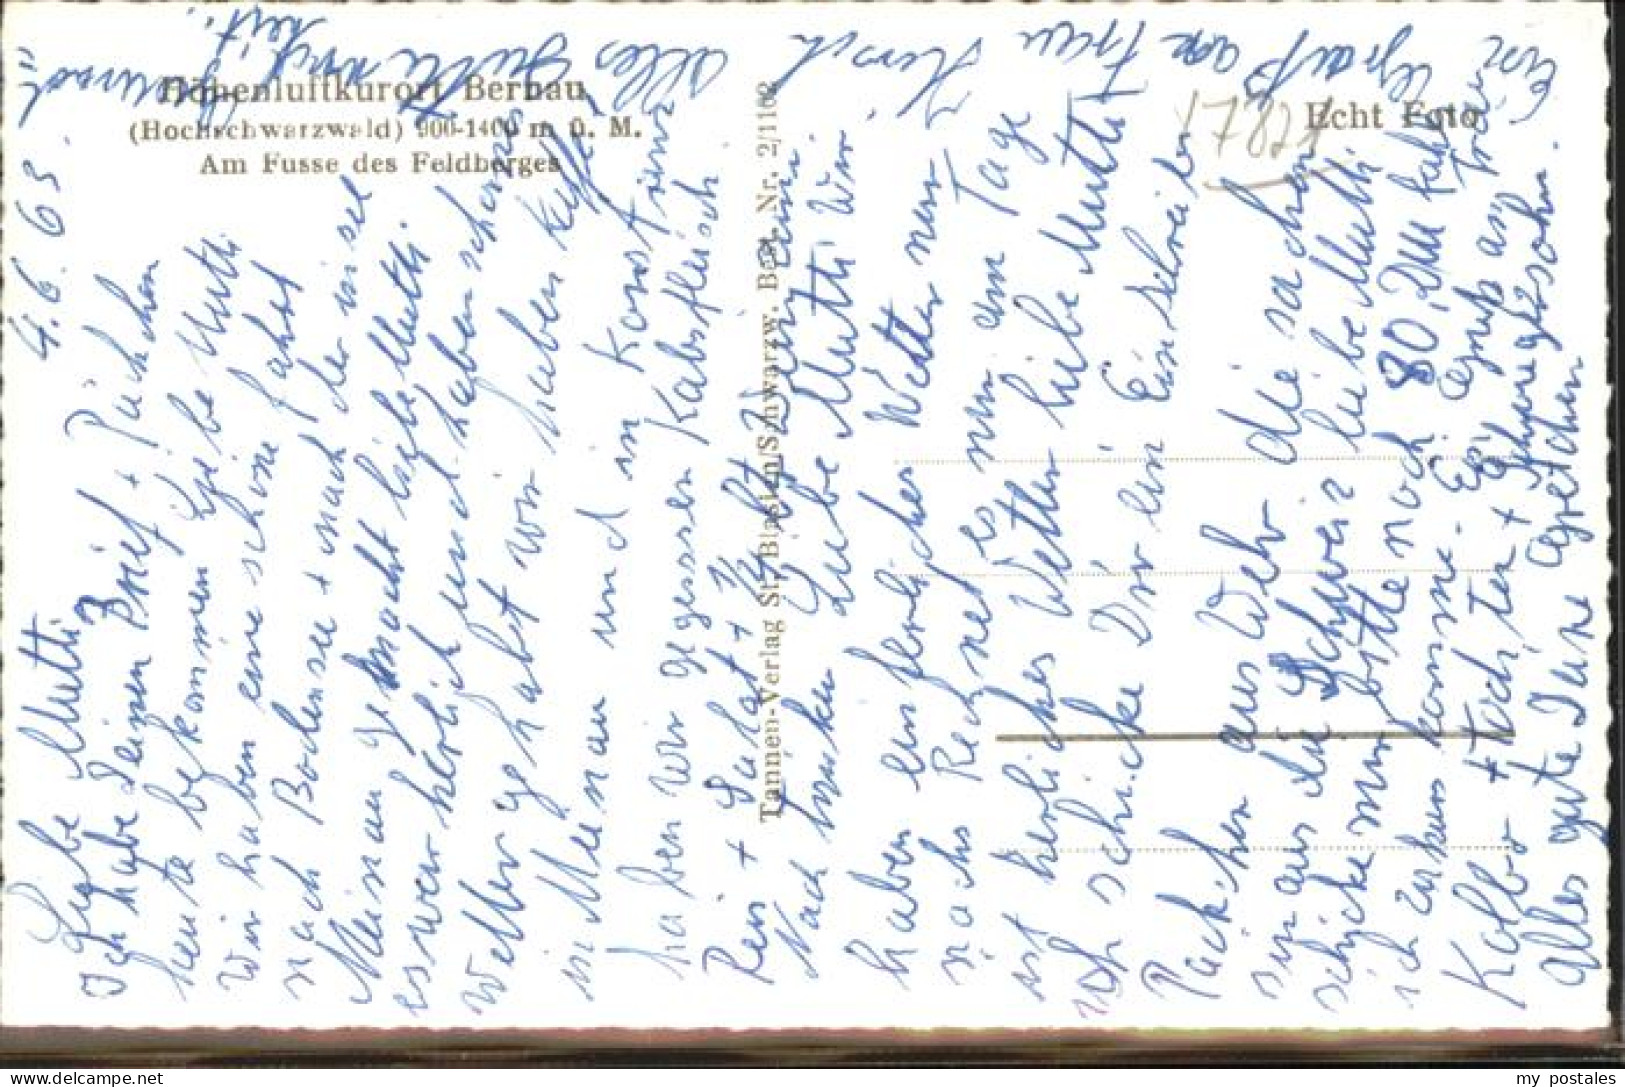 Höhenluftkurort Bernau
(Hochschwarzwald) 900-1400 m ü. M.
Am Fusse des Feldberges
Echt Foto
17821
Tannen-Verlag St. Blasien/Schwarzw. Best. Nr. 2/1102
4. 6. 63.
Liebe Mutti
Ich habe Deinen Brief + Päckchen
heute bekommen Liebe Mutti
Wir haben eine schöne fahrt
nach Bodensee + nach der insel
Meinau gemacht liebe Mutti
es war herlich und haben schönes
Wetter gehabt wir haben Kaffe
in Meinau und in Konstrinz
haben wir gegessen Kabsfleisch
Reis + Salat + 1/2
Nach
Liebe Mutti wir
haben ein herliches Wetter nur
nachs Rechnet es nur am Tage
ist herliches Wetter liebe Mutti
ich schicke Dir ein Einschreiben
Päckchen aus Wehr die sachen
sin aus die Schweiz liebe Mutti
schicke mir bitte noch 80, DM fals
ich zu kurs komme. Ein Gruß an Frau
Kolbe + Tochter + Schwiegersohn.
Alles gute Deine Gretchen
Ein Gruß an Frau Hirsch
Alles Gutte